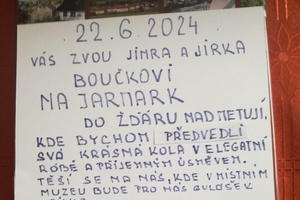 22.6.2024
VÁS ZVOU JIMRA A JIRKA
BOUČKOVI
NA JARMARK
DO ŽĎÁRU NAD METUJÍ,
KDE BYCHOM PŘEDVEDLI
SVÁ KRÁSNÁ KOLA V ELEGATNÍ
RÓBĚ A PŘÍJEMNÝM ÚSMĚVEM.
TĚŠÍ SE NA NÁS, KDE V MÍSTNÍM
MUZEU BUDE PRO NÁS